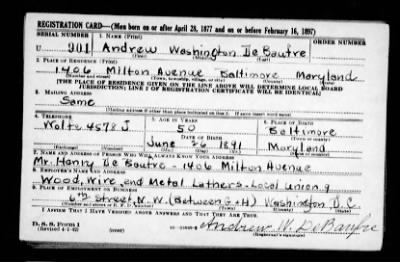 REGISTRATION CARD—(Men born on or after April 28, 1877 and on or before February 16, 1897)
SERIAL NUMBER 1. NAME (Print) ORDER NUMBER
U 301 Andrew Washington De Baufre
2. PLACE OF RESIDENCE (Print)
1406 Milton Avenue Baltimore Maryland
(Number and street) (Town, township, village, or city) (County) (State)
[THE PLACE OF RESIDENCE GIVEN ON THE LINE ABOVE WILL DETERMINE LOCAL BOARD
JURISDICTION; LINE 2 OF REGISTRATION CERTIFICATE WILL BE IDENTICAL]
3. MAILING ADDRESS
Same
[Mailing address if other than place indicated on line 2. If same insert word same]
4. TELEPHONE 5. AGE IN YEARS 6. PLACE OF BIRTH
Wolfe 4578 J 50 Baltimore
DATE OF BIRTH (Town or county)
June 26 1891 Maryland
(Exchange) (Number) (Mo.) (Day) (Yr.) (State or country)
7. NAME AND ADDRESS OF PERSON WHO WILL ALWAYS KNOW YOUR ADDRESS
Mr. Henry De Baufre - 1406 Milton Avenue
8. EMPLOYER'S NAME AND ADDRESS
Wood, Wire, and Metal Lathers - Local Union 9
9. PLACE OF EMPLOYMENT OR BUSINESS
6th Street, N.W. (Between G + H) Washington D.C.
(Number and street or R. F. D. number) (Town) (County) (State)
I AFFIRM THAT I HAVE VERIFIED ABOVE ANSWERS AND THAT THEY ARE TRUE.
D. S. S. Form 1
(Revised 4-1-42) (over) Andrew W. DeBaufre
(Registrant's signature)